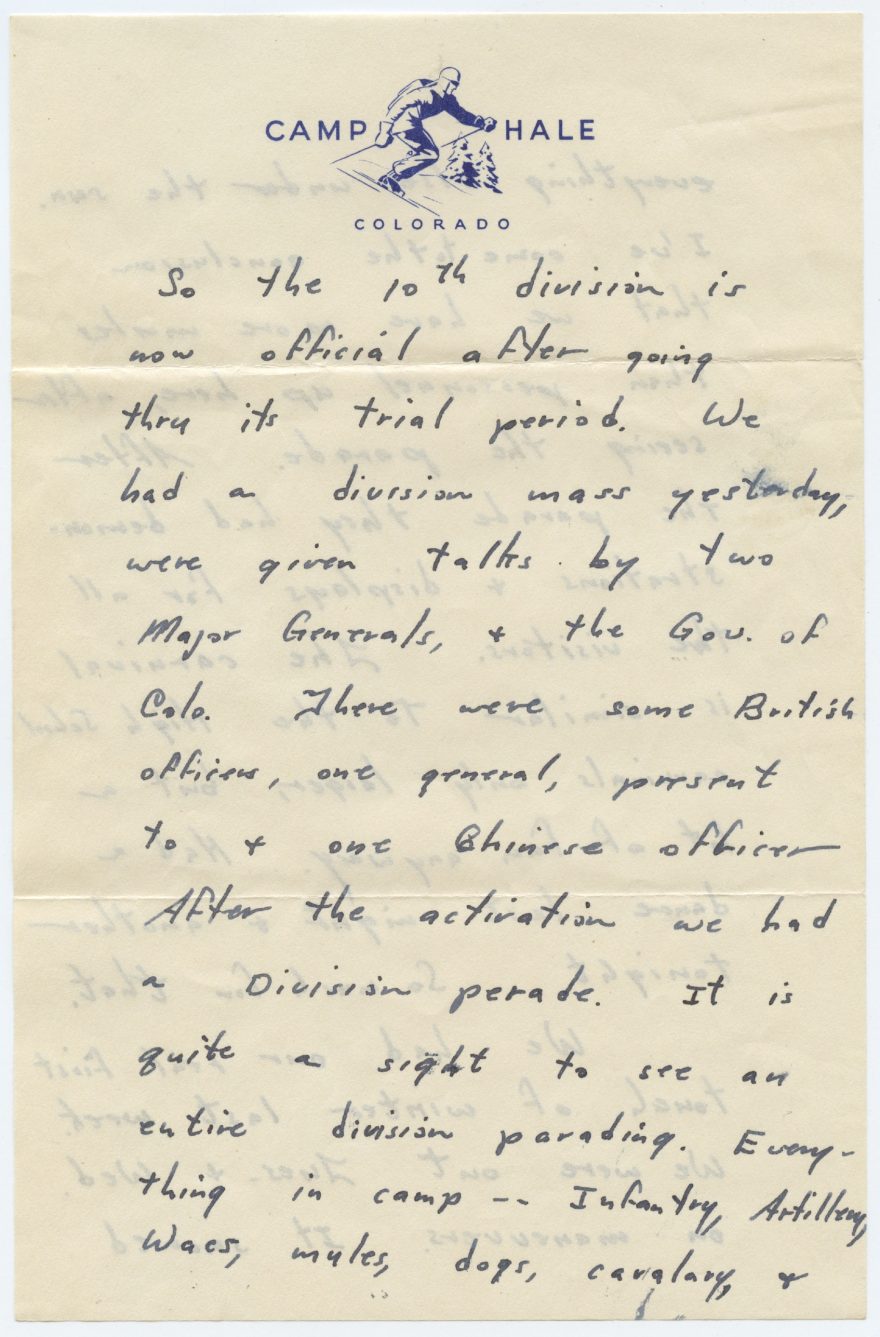 CAMP HALE
COLORADO
So the 10th division is
now official after going
thru its trial period. We
had a division mass yesterday,
were given talks by two
Major Generals, + the Gov. of
Colo. There were some British
officers, one general, present
to + one Chinese officer
After the activation we had
a Division perade. It is
quite a sight to see an
entire division parading. Every-
thing in camp -- Infantry, Artillery,
Wacs, mules, dogs, cavalary, +